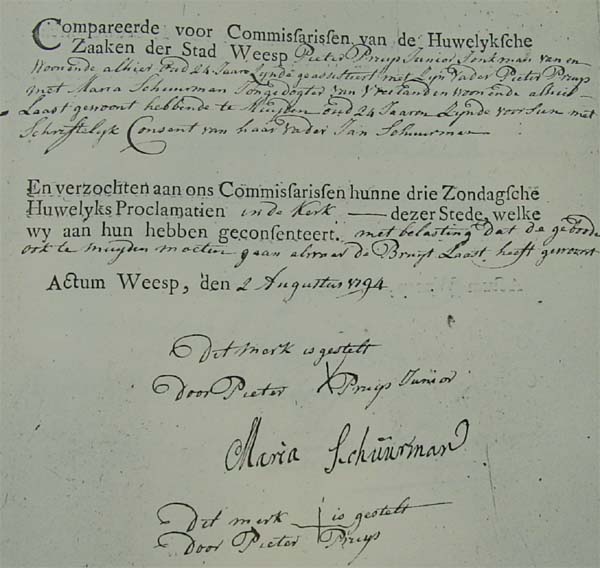 Compareerde voor Commissarissen van de Huwelyksche
Zaaken der Stad Weesp Pieter Pruys Junior Jonkman van en
woonende alhier oud 24 Jaare Zynde geassisteert met Zyn Vader Pieter Pruys
met Maria Schuurman Jongedogter van Vreeland en woonende alhier
Laast gewoont hebbende te Muyden oud 24 Jaaren Zynde voorsien met
Schriftelyk Consent van haar vader Jan Schuurman
En verzochten aan ons Commissarissen hunne drie Zondagsche
Huwelyks Proclamatien in de Kerk — dezer Stede, welke
wy aan hun hebben geconsenteert. met belasting dat de geboode
ook te muyden moeten gaan alwaar de Bruyt Laast heeft gewoont
Actum Weesp, den 2 Augustus 1794
Dit merk is gestelt
Door Pieter X Pruys Junior
Maria Schuurman
Dit merk + is gestelt
Door Pieter Pruys